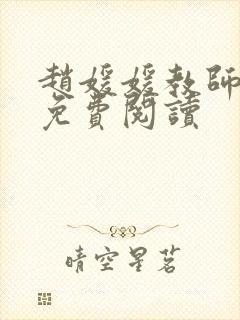 趙媛媛教師
免費閱讀
晴空星茗